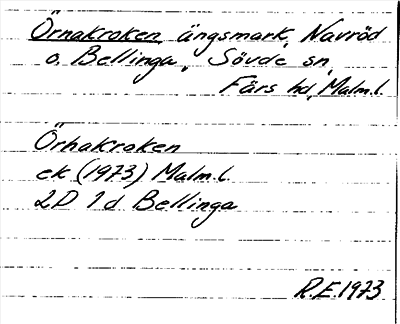 Örnakroken ängsmark, Navröd
o. Bellinga, Sövde sn,
Färs hd, Malm.l.
Örnakroken
ek (1973) Malm.l.
2D 1d Bellinga
R.E. 1973